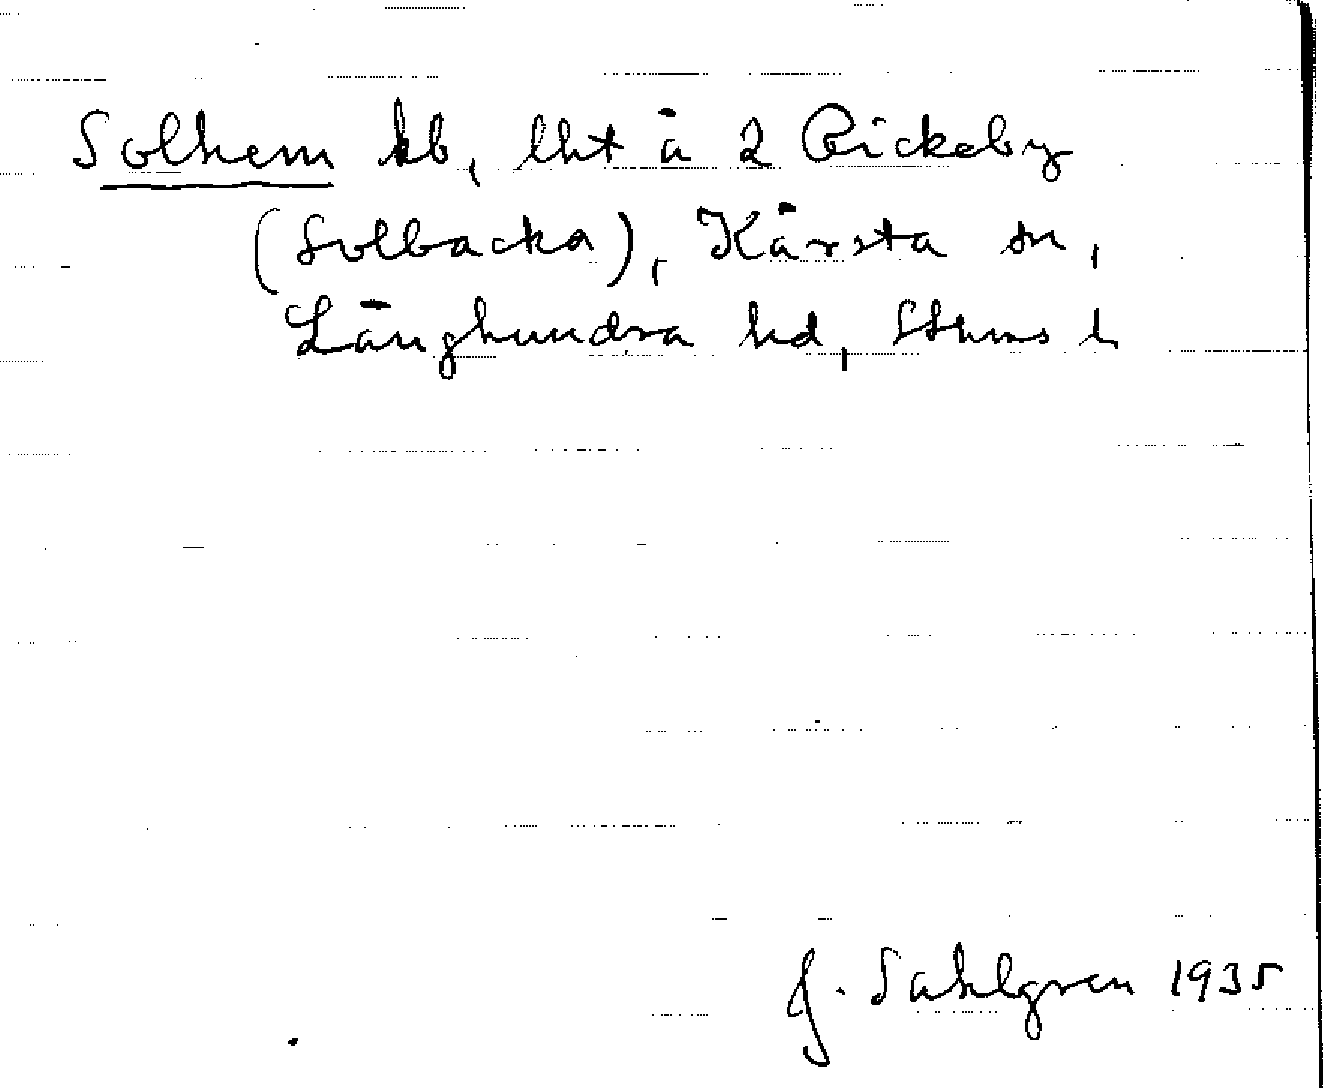 Solhem kb, lht å 2 Rickeby
(Solbacka), Kårsta sn,
Långhundra hd, Sthms l
J. Sahlgren 1935